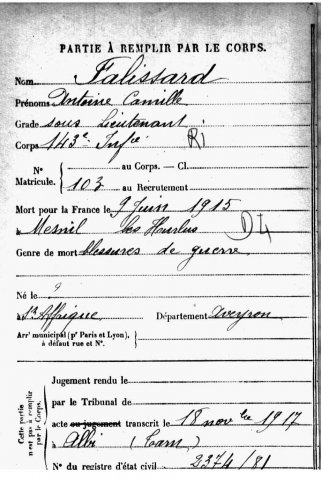 PARTIE À REMPLIR PAR LE CORPS.
Nom Falissard
Prénoms Antoine Camille
Grade sous Lieutenant
Corps 143e Infie RI
No Matricule. au Corps. — Cl.
103 au Recrutement
Mort pour la France le 9 Juin 1915
à Mesnil les Hurlus
Genre de mort blessures de guerre
Né le ?
à St Affrique Département Aveyron
Arrt municipal (pr Paris et Lyon), à défaut rue et No.
Cette partie n'est pas à remplir par le Corps.
Jugement rendu le
par le Tribunal de
acte ou jugement transcrit le 18 novbre 1917
à Albi (Tarn)
No du registre d'état civil 2374/81